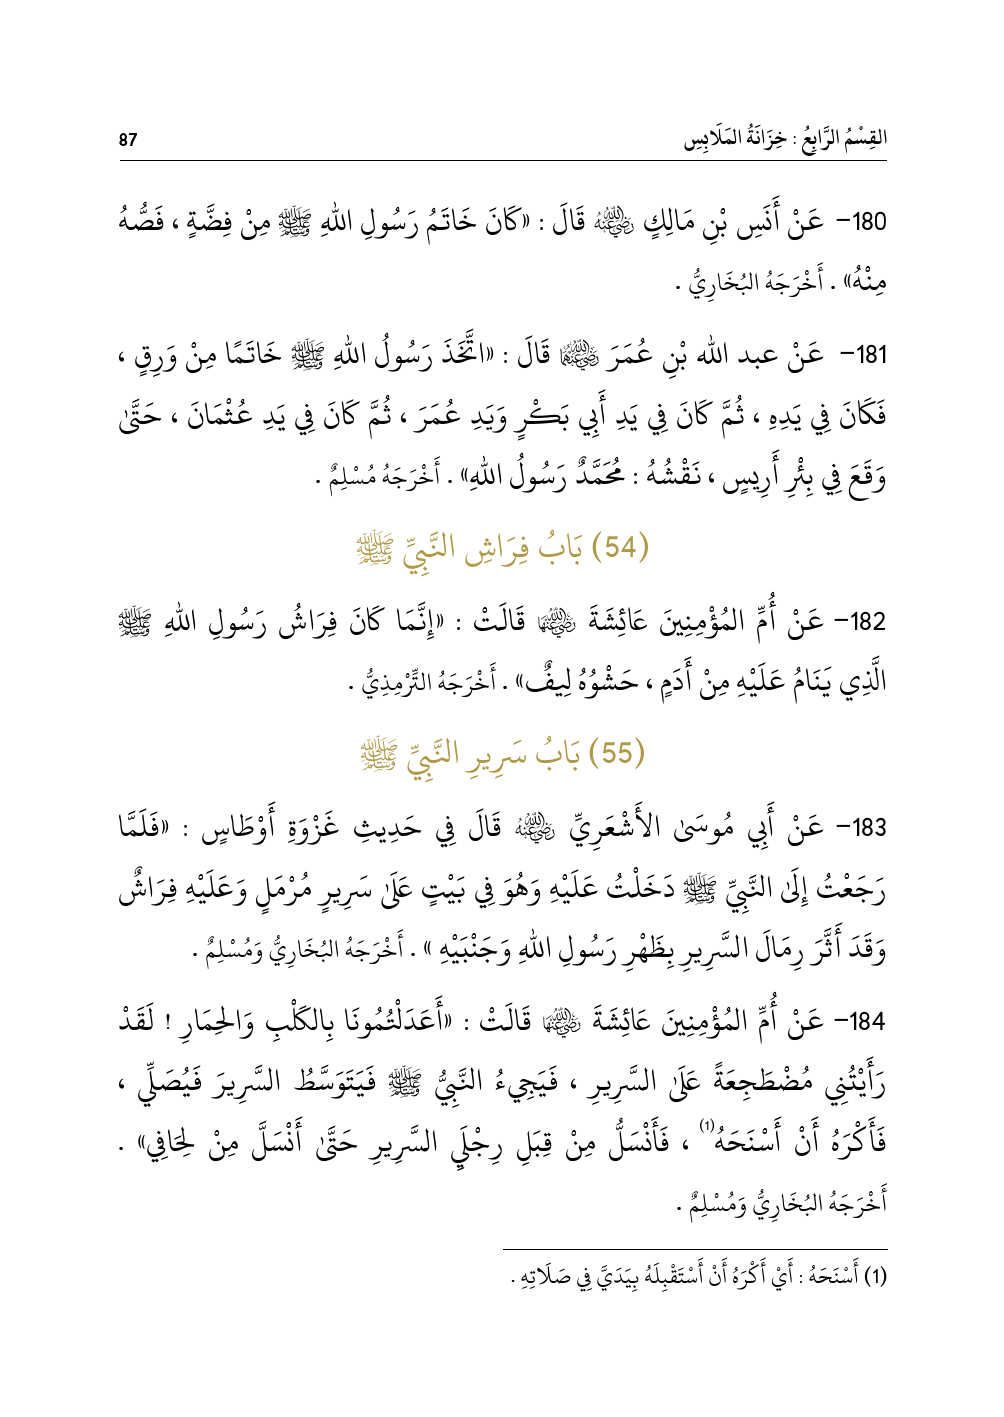 القِسْمُ الرَّابِعُ : خِزَانَةُ المَلَابِسِ 87
180- عَنْ أَنَسِ بْنِ مَالِكٍ ﵁ قَالَ : «كَانَ خَاتَمُ رَسُولِ اللهِ ﷺ مِنْ فِضَّةٍ ، فَصُّهُ
مِنْهُ» . أَخْرَجَهُ البُخَارِيُّ .
181- عَنْ عبد الله بْنِ عُمَرَ ﵄ قَالَ : «اتَّخَذَ رَسُولُ اللهِ ﷺ خَاتَمًا مِنْ وَرِقٍ ،
فَكَانَ فِي يَدِهِ ، ثُمَّ كَانَ فِي يَدِ أَبِي بَكْرٍ وَيَدِ عُمَرَ ، ثُمَّ كَانَ فِي يَدِ عُثْمَانَ ، حَتَّىٰ
وَقَعَ فِي بِئْرِ أَرِيسٍ ، نَقْشُهُ : مُحَمَّدٌ رَسُولُ اللهِ» . أَخْرَجَهُ مُسْلِمٌ .
(54) بَابُ فِرَاشِ النَّبِيِّ ﷺ
182- عَنْ أُمِّ المُؤْمِنِينَ عَائِشَةَ ﵂ قَالَتْ : «إِنَّمَا كَانَ فِرَاشُ رَسُولِ اللهِ ﷺ
الَّذِي يَنَامُ عَلَيْهِ مِنْ أَدَمٍ ، حَشْوُهُ لِيفٌ» . أَخْرَجَهُ التِّرْمِذِيُّ .
(55) بَابُ سَرِيرِ النَّبِيِّ ﷺ
183- عَنْ أَبِي مُوسَىٰ الأَشْعَرِيِّ ﵁ قَالَ فِي حَدِيثِ غَزْوَةِ أَوْطَاسٍ : «فَلَمَّا
رَجَعْتُ إِلَىٰ النَّبِيِّ ﷺ دَخَلْتُ عَلَيْهِ وَهُوَ فِي بَيْتٍ عَلَىٰ سَرِيرٍ مُرْمَلٍ وَعَلَيْهِ فِرَاشٌ
وَقَدَ أَثَّرَ رِمَالَ السَّرِيرِ بِظَهْرِ رَسُولِ اللهِ وَجَنْبَيْهِ » . أَخْرَجَهُ البُخَارِيُّ وَمُسْلِمٌ .
184- عَنْ أُمِّ المُؤْمِنِينَ عَائِشَةَ ﵂ قَالَتْ : «أَعَدَلْتُمُونَا بِالكَلْبِ وَالحِمَارِ ! لَقَدْ
رَأَيْتُنِي مُضْطَجِعَةً عَلَىٰ السَّرِيرِ ، فَيَجِيءُ النَّبِيُّ ﷺ فَيَتَوَسَّطُ السَّرِيرَ فَيُصَلِّي ،
فَأَكْرَهُ أَنْ أَسْنَحَهُ(1) ، فَأَنْسَلُّ مِنْ قِبَلِ رِجْلَيِ السَّرِيرِ حَتَّىٰ أَنْسَلَّ مِنْ لِحَافِي» .
أَخْرَجَهُ البُخَارِيُّ وَمُسْلِمٌ .
(1) أَسْنَحَهُ : أَيْ أَكْرَهُ أَنْ أَسْتَقْبِلَهُ بِيَدَيَّ فِي صَلَاتِهِ .